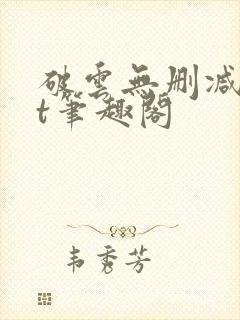 破雲無刪减
t筆趣閣
韦秀芳